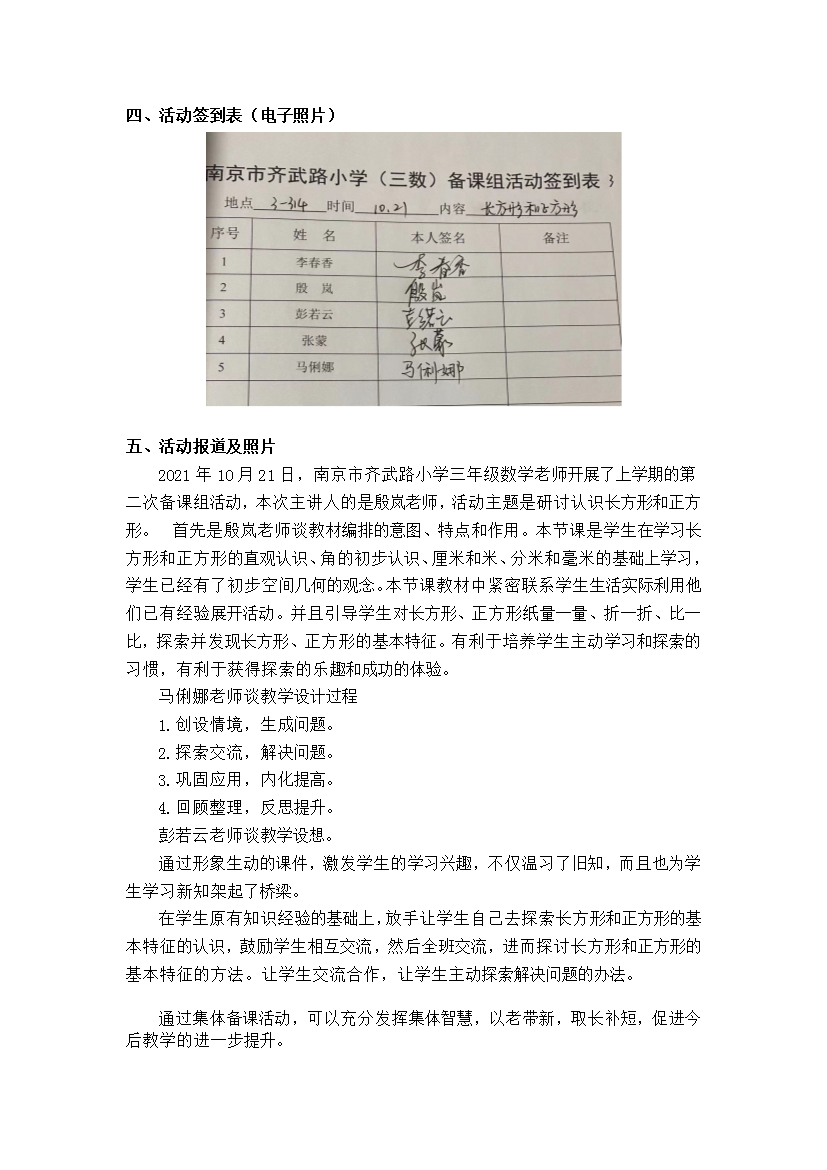 四、活动签到表（电子照片）
南京市齐武路小学（三数）备课组活动签到表 3
地点 3-314 时间 10.21 内容 长方形和正方形
序号 姓 名 本人签名 备注
1 李春香 李春香
2 殷 岚 殷岚
3 彭若云 彭若云
4 张蒙 张蒙
5 马俐娜 马俐娜
五、活动报道及照片
2021 年 10 月 21 日，南京市齐武路小学三年级数学老师开展了上学期的第
二次备课组活动，本次主讲人的是殷岚老师，活动主题是研讨认识长方形和正方
形。 首先是殷岚老师谈教材编排的意图、特点和作用。本节课是学生在学习长
方形和正方形的直观认识、角的初步认识、厘米和米、分米和毫米的基础上学习，
学生已经有了初步空间几何的观念。本节课教材中紧密联系学生生活实际利用他
们已有经验展开活动。并且引导学生对长方形、正方形纸量一量、折一折、比一
比，探索并发现长方形、正方形的基本特征。有利于培养学生主动学习和探索的
习惯，有利于获得探索的乐趣和成功的体验。
马俐娜老师谈教学设计过程
1.创设情境，生成问题。
2.探索交流，解决问题。
3.巩固应用，内化提高。
4.回顾整理，反思提升。
彭若云老师谈教学设想。
通过形象生动的课件，激发学生的学习兴趣，不仅温习了旧知，而且也为学
生学习新知架起了桥梁。
在学生原有知识经验的基础上，放手让学生自己去探索长方形和正方形的基
本特征的认识，鼓励学生相互交流，然后全班交流，进而探讨长方形和正方形的
基本特征的方法。让学生交流合作，让学生主动探索解决问题的办法。
通过集体备课活动，可以充分发挥集体智慧，以老带新，取长补短，促进今
后教学的进一步提升。